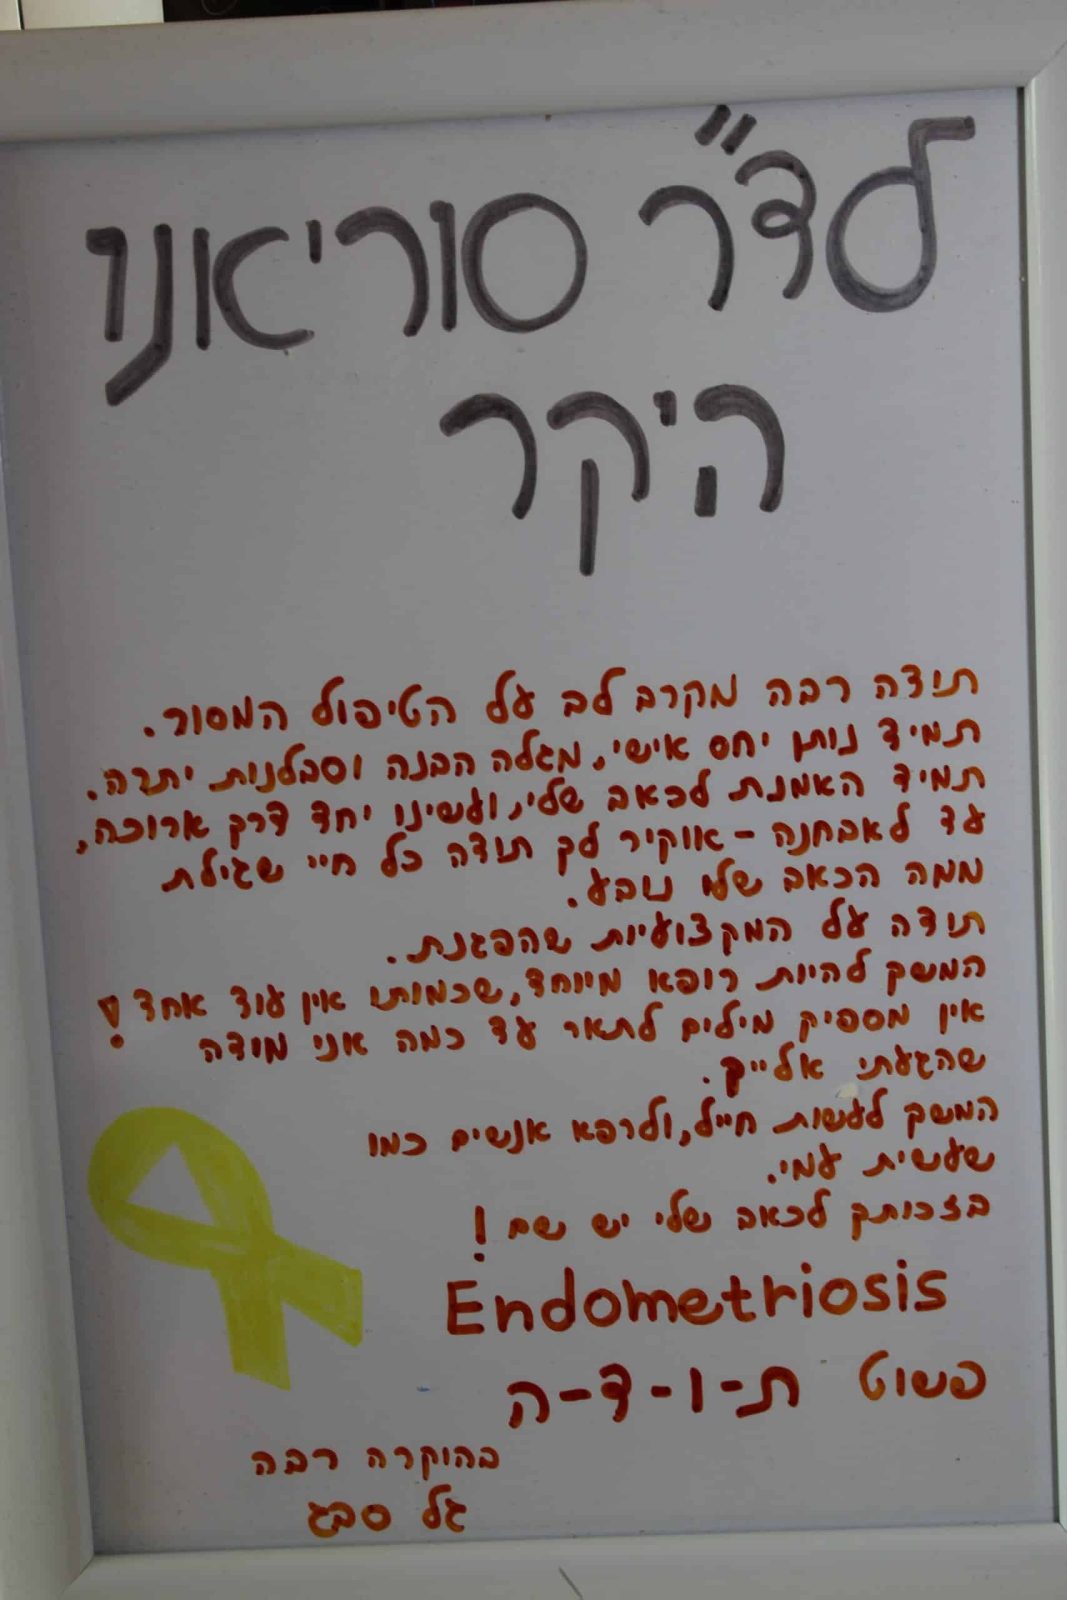 לד"ר סוריאנו
היקר
תודה רבה מקרב לב על הטיפול המסור.
תמיד נותן יחס אישי, מגלה הבנה וסבלנות יתרה.
תמיד האמנת לכאב שלי, ועשינו יחד דרך ארוכה,
עד לאבחנה - אוקיר לך תודה כל חיי שגילת
ממה הכאב שלי נובע.
תודה על המקצועיות שהפגנת.
המשך להיות רופא מיוחד, שכמותו אין עוד אחד!
אין מספיק מילים לתאר עד כמה אני מודה
שהגעתי אלייך.
המשך לעשות חייל, ולרפא אנשים כמו
שעשית עמי.
בזכותך לכאב שלי יש שם!
Endometriosis
פשוט ת-ו-ד-ה
בהוקרה רבה
גל סבג